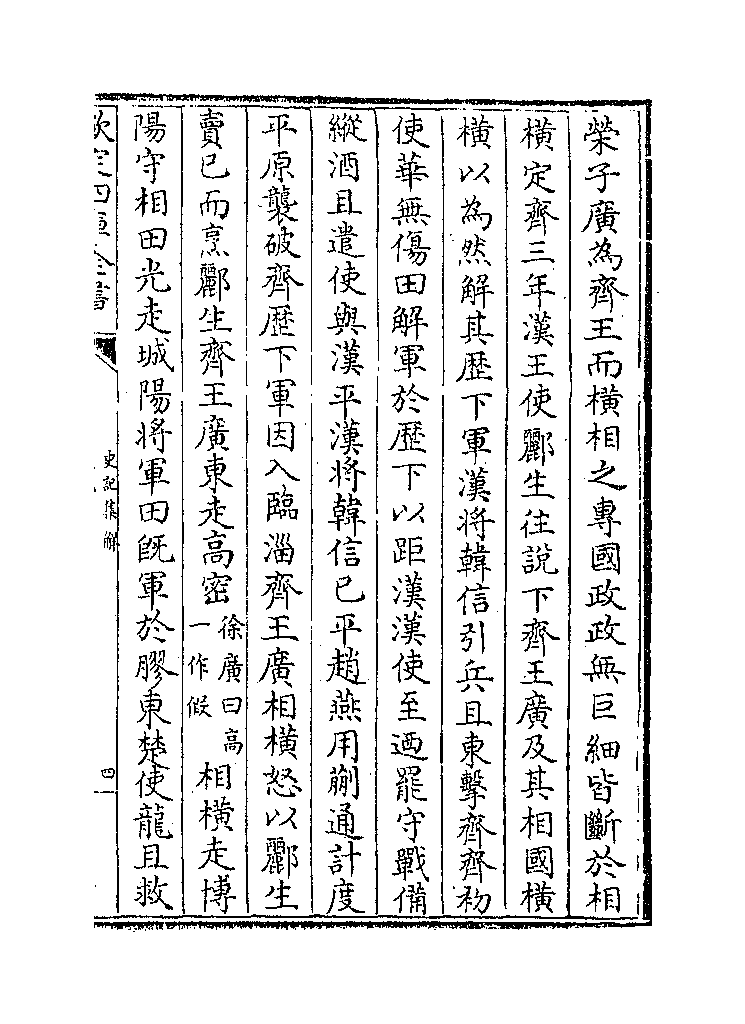 榮子廣為齊王而橫相之專國政政無巨細皆斷於相
橫定齊三年漢王使酈生往說下齊王廣及其相國橫
橫以為然解其歴下軍漢將韓信引兵且東擊齊齊初
使華無傷田解軍於歴下以距漢漢使至迺罷守戰備
縱酒且遣使與漢平漢將韓信已平趙燕用蒯通計度
平原襲破齊歴下軍因入臨淄齊王廣相橫怒以酈生
賣已而烹酈生齊王廣東走高密徐廣曰高一作假相橫走博
陽守相田光走城陽將軍田旣軍於膠東楚使龍且救
欽定四庫全書
史記集解
四